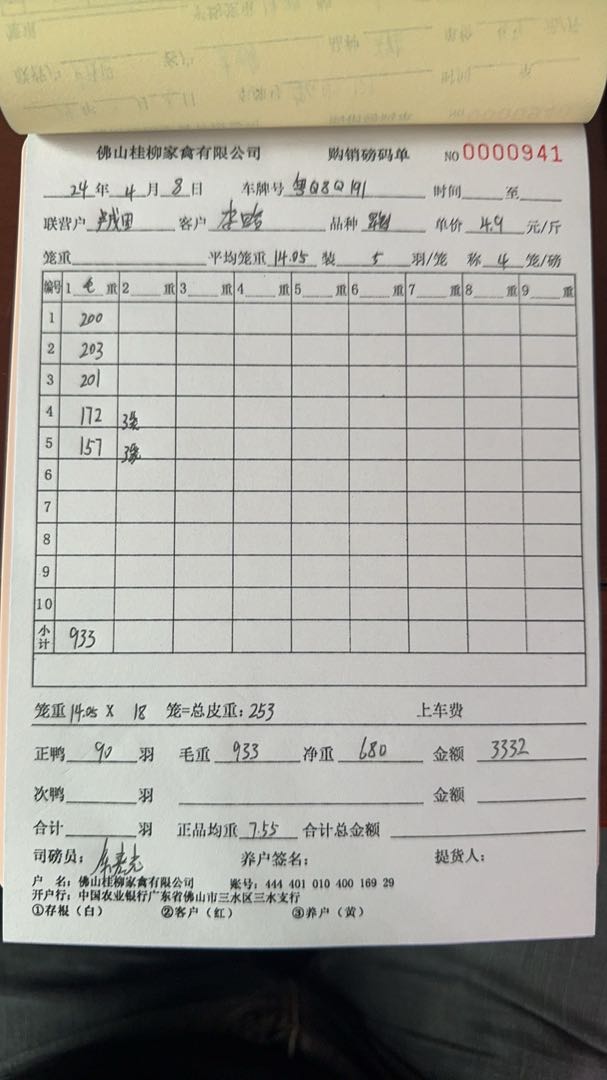 佛山桂柳家禽有限公司 购销磅码单 NO 0000941
24 年 4 月 8 日 车牌号 粤Q8Q191 时间 至
联营户 客户 品种 单价 4.9 元/斤
笼重 平均笼重 14.05 装 5 羽/笼 称 4 笼/磅
编号 1 毛 重 2 重 3 重 4 重 5 重 6 重 7 重 8 重 9 重
1 200
2 203
3 201
4 172 3笼
5 157 3笼
6
7
8
9
10
小计 933
笼重 14.05 X 18 笼=总皮重: 253 上车费
正鸭 90 羽 毛重 933 净重 680 金额 3332
次鸭 羽 金额
合计 羽 正品均重 7.55 合计总金额
司磅员: 养户签名: 提货人:
户 名: 佛山桂柳家禽有限公司 账号: 444 401 010 400 169 29
开户行: 中国农业银行广东省佛山市三水区三水支行
①存根（白） ②客户（红） ③养户（黄）